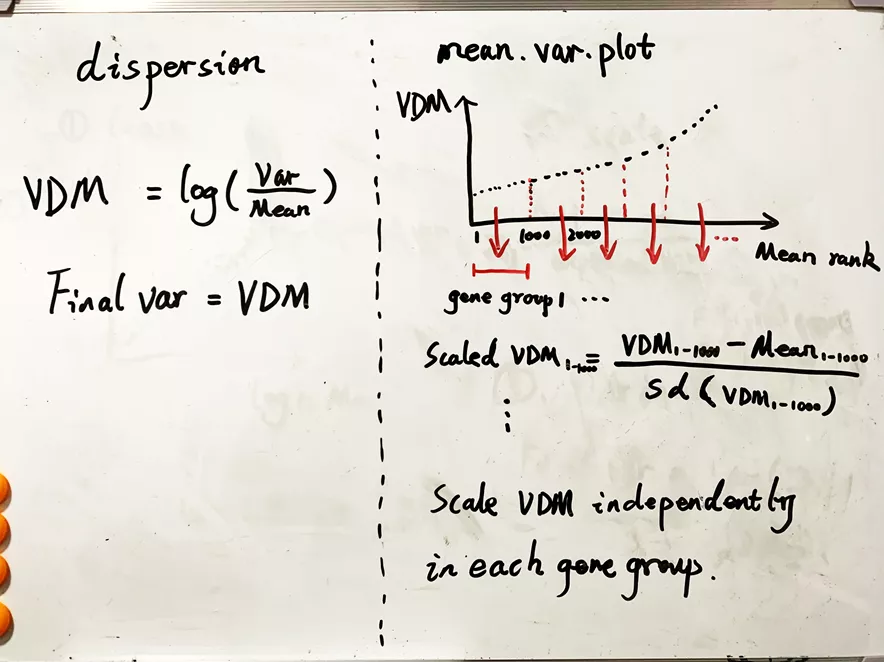 dispersion
VDM = log(Var/Mean)
Final var = VDM
mean.var.plot
VDM
1 1000 2000 ...
Mean rank
gene group 1 ...
Scaled VDM₁₋₁₀₀₀ = (VDM₁₋₁₀₀₀ − Mean₁₋₁₀₀₀) / sd(VDM₁₋₁₀₀₀)
⋮
Scale VDM independently
in each gene group.